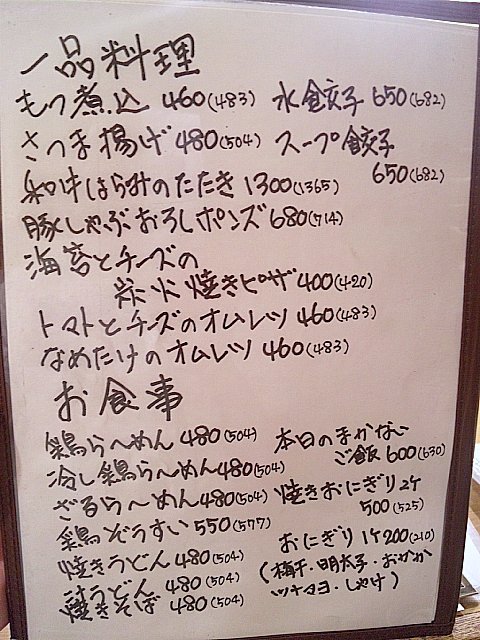 一品料理
もつ煮込 460(483)
水餃子 650(682)
さつま揚げ 480(504)
スープ餃子
650(682)
和牛はらみのたたき 1300(1365)
豚しゃぶおろしポンズ 680(714)
海苔とチーズの
炭火焼きピザ 400(420)
トマトとチーズのオムレツ 460(483)
なめたけのオムレツ 460(483)
お食事
鶏らーめん 480(504)
冷し鶏らーめん 480(504)
ざるらーめん 480(504)
鶏ぞうすい 550(577)
焼きうどん 480(504)
汁うどん 480(504)
焼きそば 480(504)
本日のまかない
ご飯 600(630)
焼きおにぎり 2ケ
500(525)
おにぎり 1ケ 200(210)
(梅干・明太子・おかか
ツナマヨ・しゃけ)